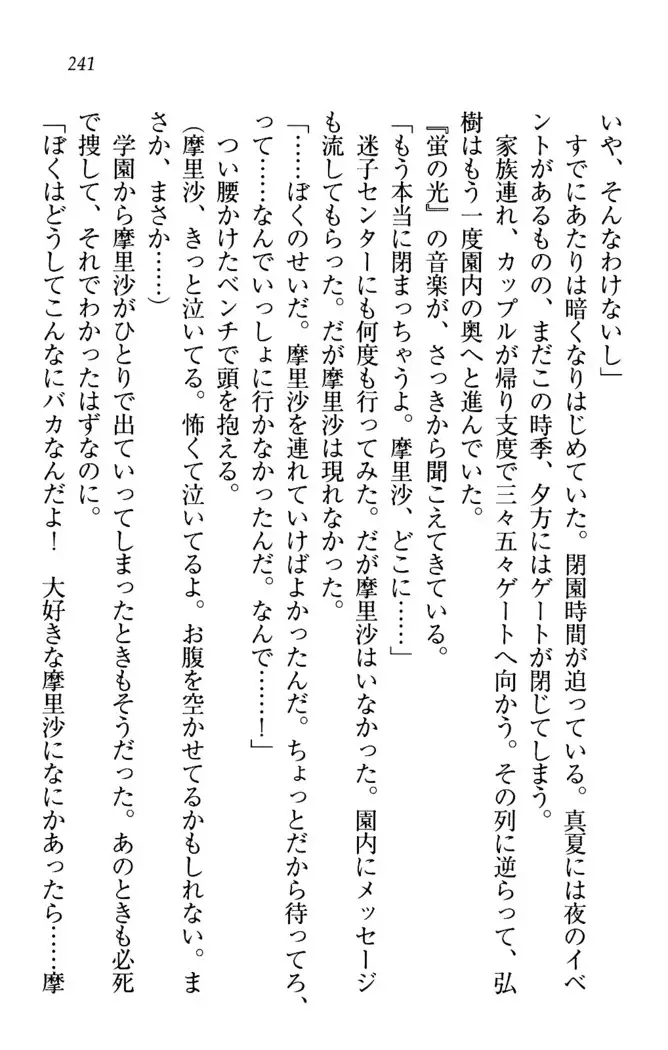 241
いや、そんなわけないし」
　すでにあたりは暗くなりはじめていた。閉園時間が迫っている。真夏には夜のイベ
ントがあるものの、まだこの時季、夕方にはゲートが閉じてしまう。
　家族連れ、カップルが帰り支度で三々五々ゲートへ向かう。その列に逆らって、弘
樹はもう一度園内の奥へと進んでいた。
『蛍の光』の音楽が、さっきから聞こえてきている。
「もう本当に閉まっちゃうよ。摩里沙、どこに……」
　迷子センターにも何度も行ってみた。だが摩里沙はいなかった。園内にメッセージ
も流してもらった。だが摩里沙は現れなかった。
「……ぼくのせいだ。摩里沙を連れていけばよかったんだ。ちょっとだから待ってろ、
って……なんでいっしょに行かなかったんだ。なんで……！」
　つい腰かけたベンチで頭を抱える。
（摩里沙、きっと泣いてる。怖くて泣いてるよ。お腹を空かせてるかもしれない。ま
さか、まさか……）
　学園から摩里沙がひとりで出ていってしまったときもそうだった。あのときも必死
で捜して、それでわかったはずなのに。
「ぼくはどうしてこんなにバカなんだよ！　大好きな摩里沙になにかあったら……摩